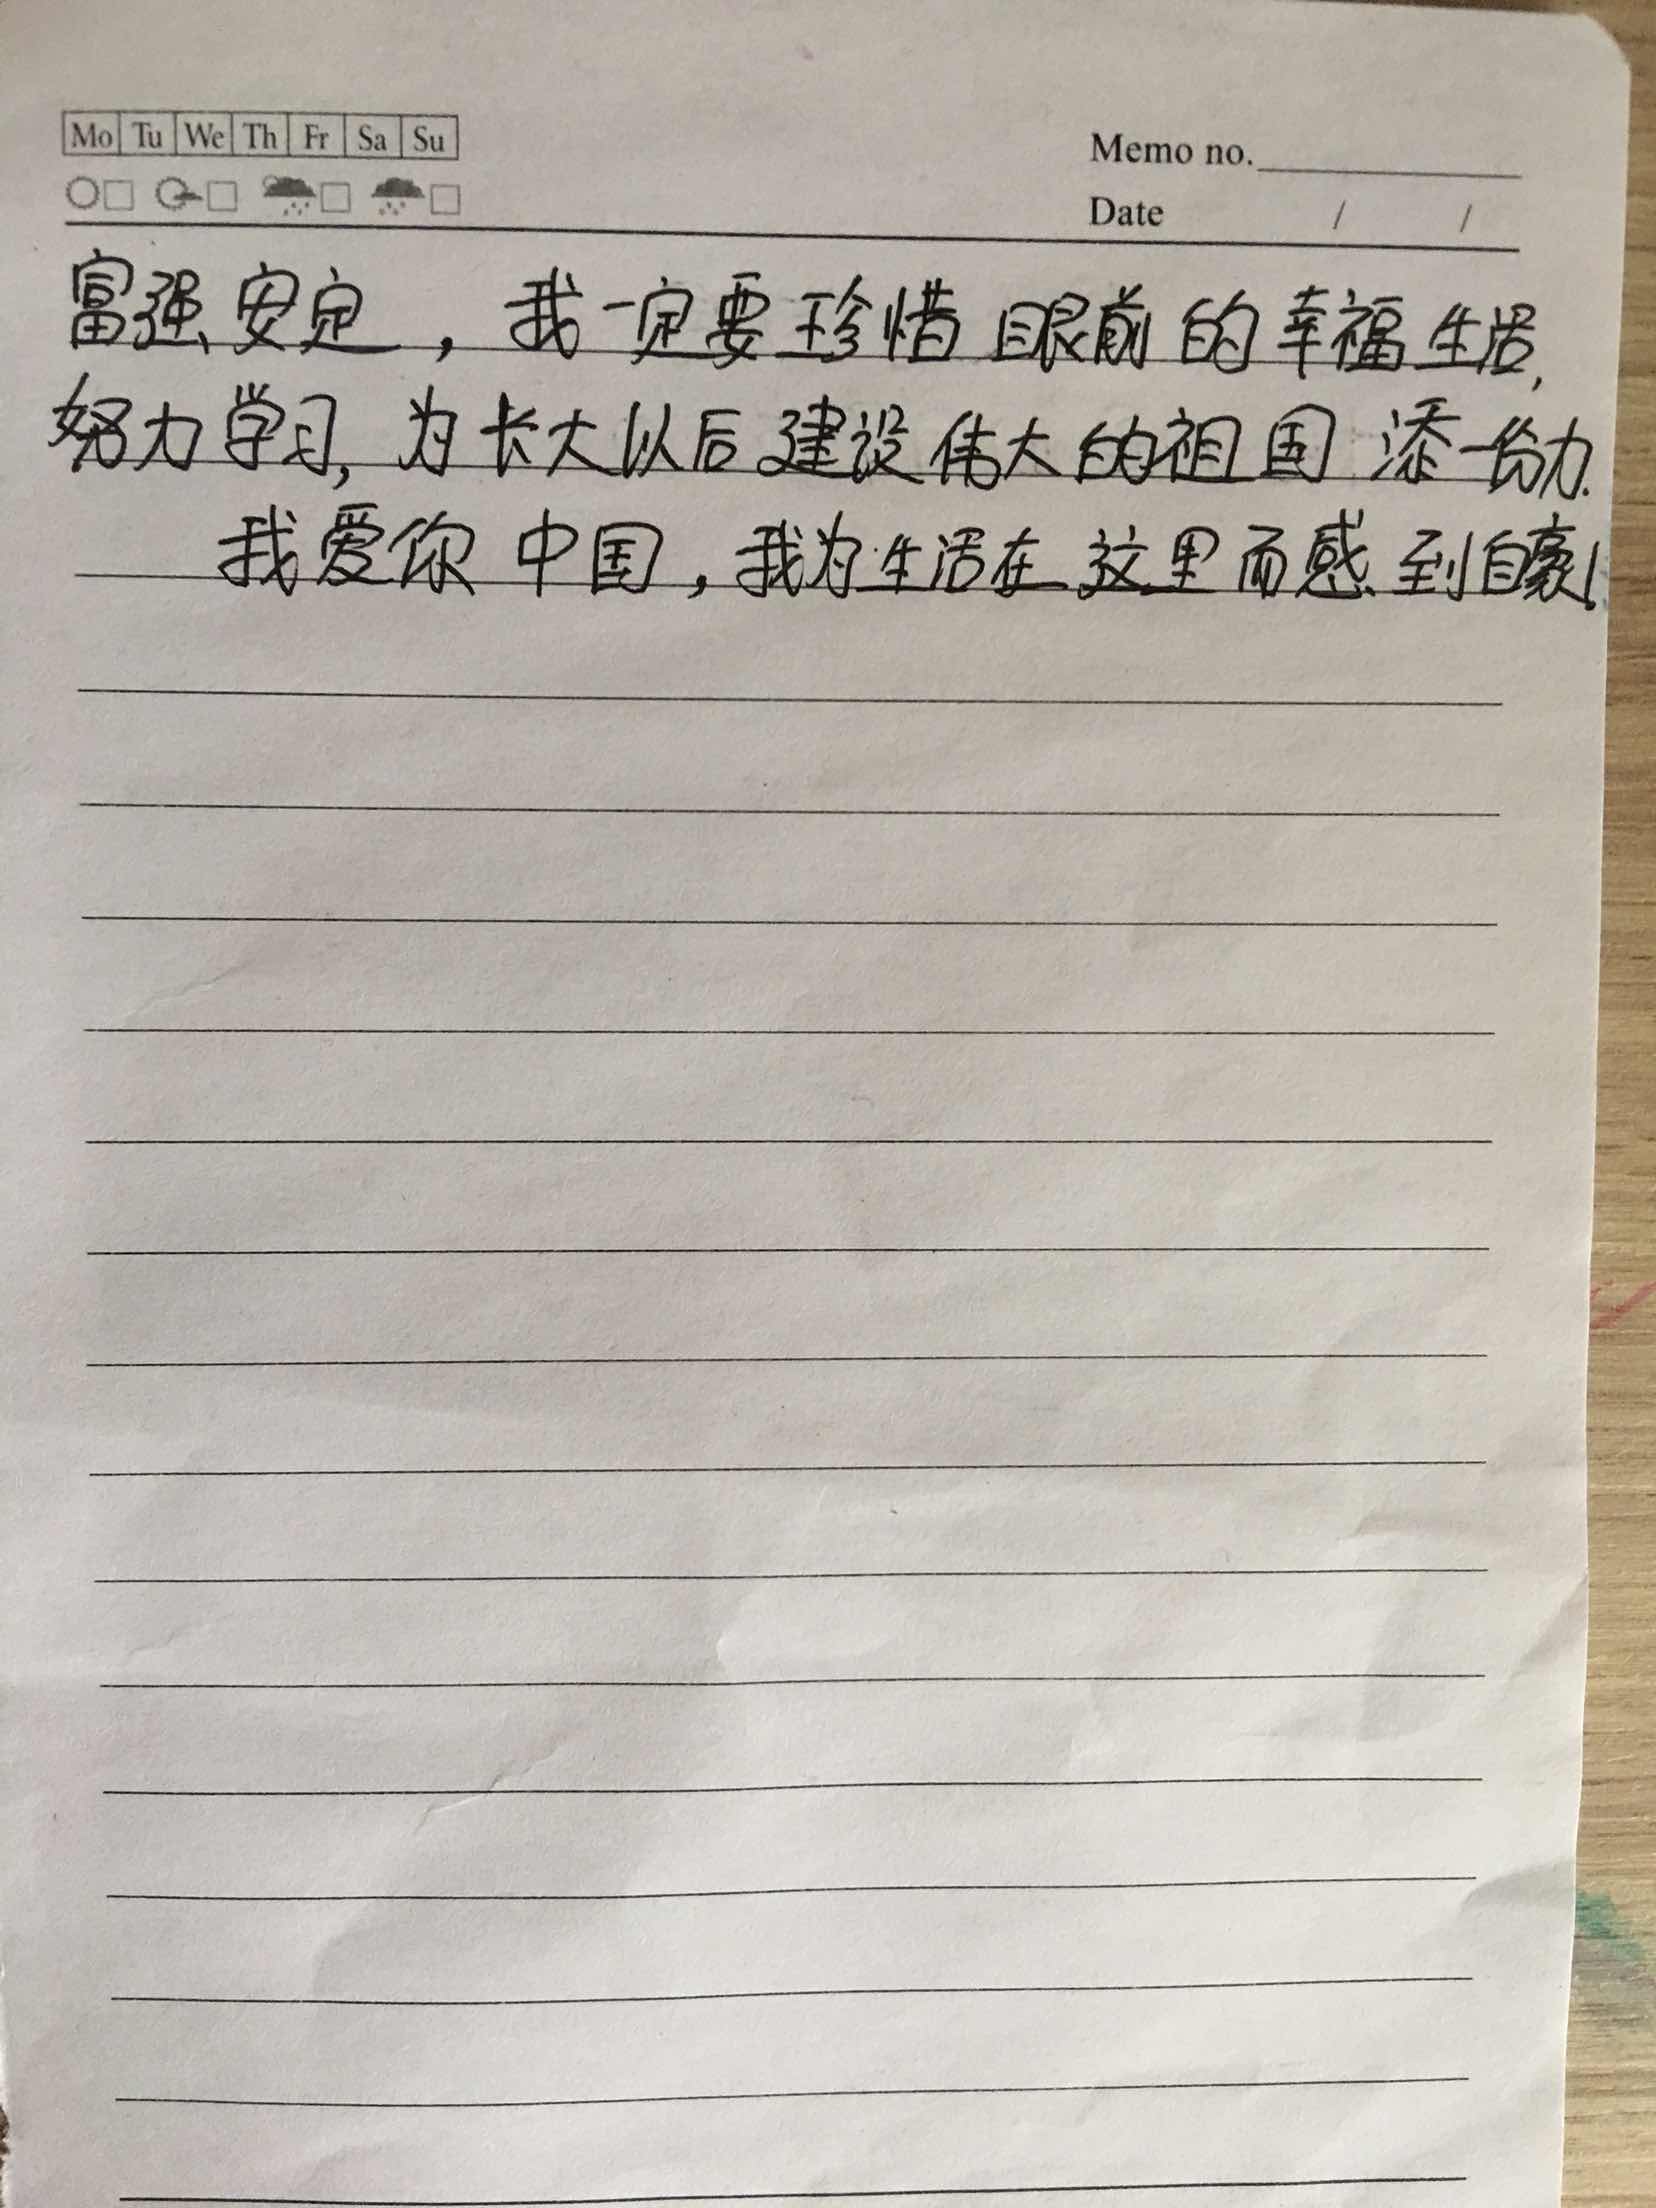 Mo Tu We Th Fr Sa Su
Memo no.
Date / /
富强安定，我一定要珍惜眼前的幸福生活，
努力学习，为长大以后建设伟大的祖国添一份力.
我爱你中国，我为生活在这里而感到自豪！